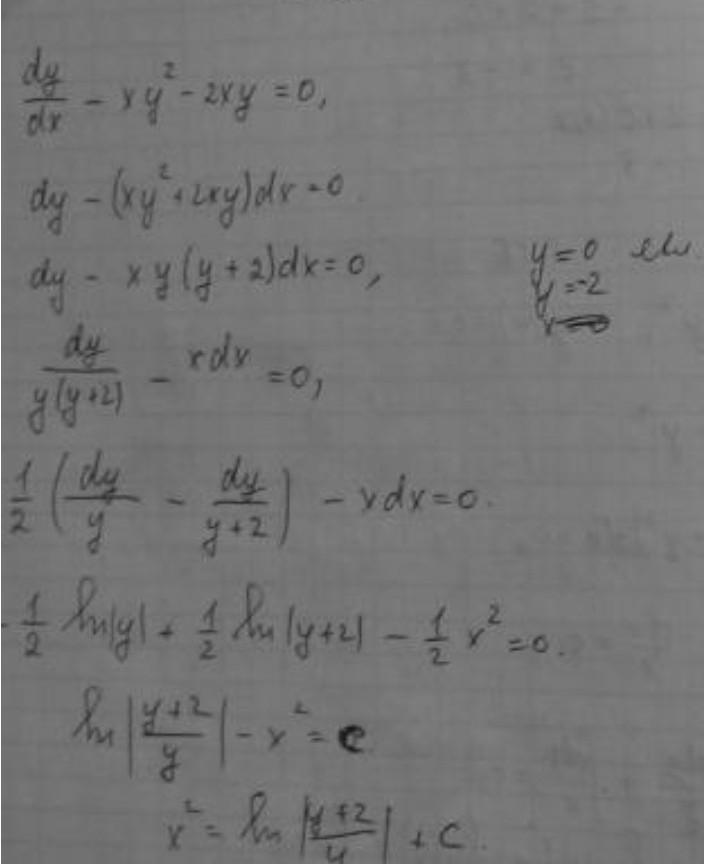 dy/dx - xy² - 2xy = 0,
dy - (xy² + 2xy)dx = 0.
dy - xy(y + 2)dx = 0,
y = 0
y = -2
dy/(y(y+2)) - xdx = 0,
1/2 (dy/y - dy/(y+2)) - xdx = 0.
- 1/2 ln|y| + 1/2 ln|y+2| - 1/2 x² = 0.
ln|(y+2)/y| - x² = C
x² = ln|(y+2)/y| + C.